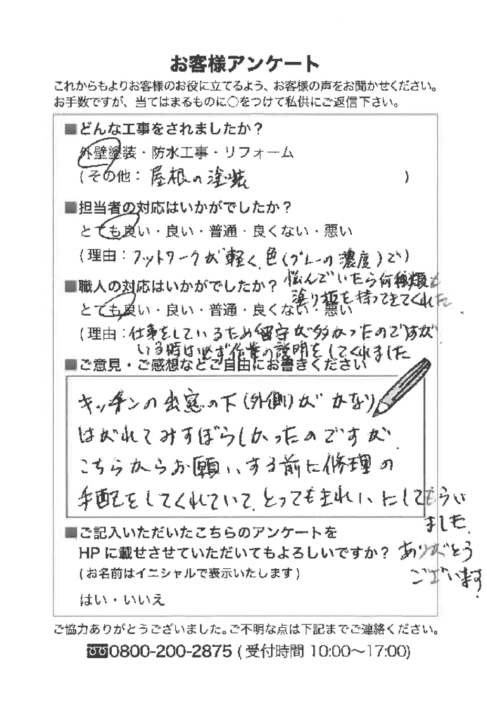 お客様アンケート
これからもよりお客様のお役に立てるよう、お客様の声をお聞かせください。
お手数ですが、当てはまるものに○をつけて私供にご返信下さい。
■どんな工事をされましたか？
外壁塗装・防水工事・リフォーム
(その他： 屋根の塗装 )
■担当者の対応はいかがでしたか？
とても良い・良い・普通・良くない・悪い
(理由：フットワークが軽く、色(グレーの濃度)で)
悩んでいたら何種類も
塗り板を持ってきてくれた
■職人の対応はいかがでしたか？
とても良い・良い・普通・良くない・悪い
(理由：仕事をしているため留守が多かったのですが
いる時は必ず作業の説明をしてくれました
■ご意見・ご感想などご自由にお書きください
キッチンの出窓の下(外側)が かなり
はがれてみすぼらしかったのですが
こちらからお願いする前に修理の
手配をしてくれていて、とってもきれいにしてもらい
ました。
ありがとう
ございます
■ご記入いただいたこちらのアンケートを
HPに載せさせていただいてもよろしいですか？
(お名前はイニシャルで表示いたします)
はい・いいえ
ご協力ありがとうございました。ご不明な点は下記までご連絡ください。
0800-200-2875 (受付時間 10:00〜17:00)